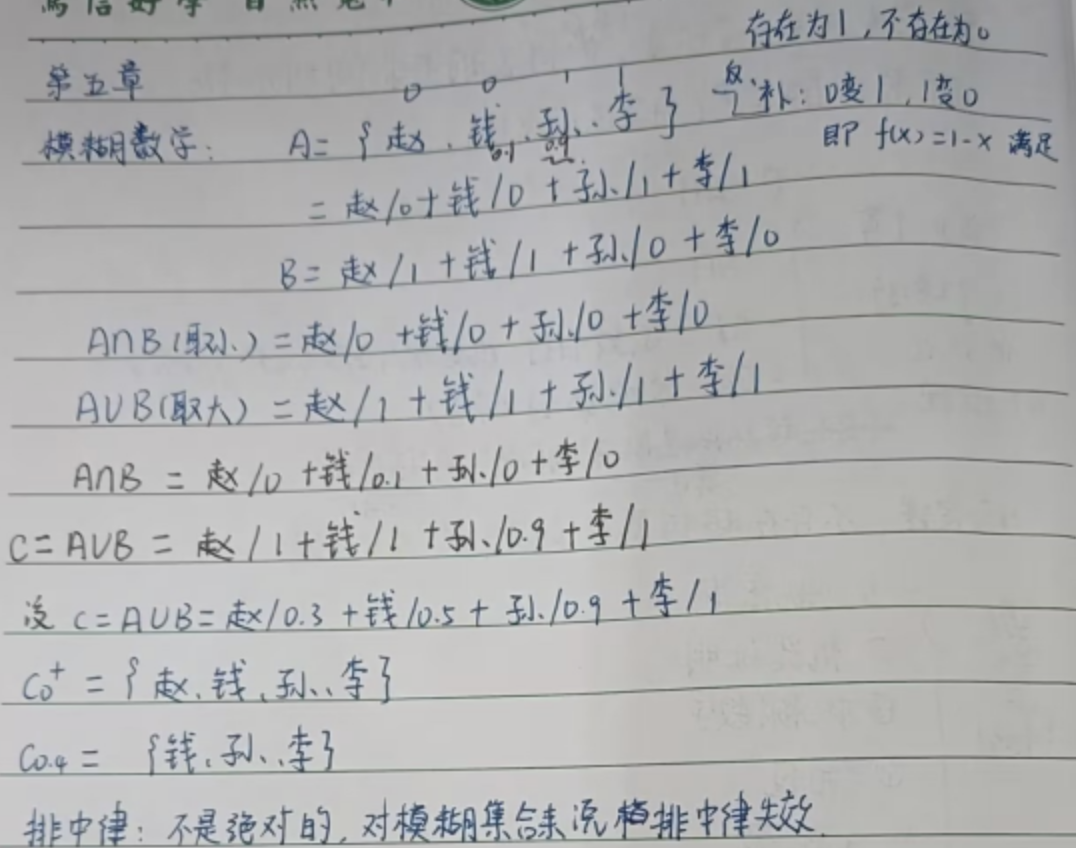 笃信好学 自然宽
存在为1,不存在为0
第五章
0 0 1 1
模糊数学: A={赵、钱、孙、李} 反、补: 0变1,1变0
0.1 0.9
即 f(x)=1-x 满足
= 赵/0+钱/0+孙/1+李/1
B= 赵/1+钱/1+孙/0+李/0
A∩B(取小)=赵/0+钱/0+孙/0+李/0
A∪B(取大)=赵/1+钱/1+孙/1+李/1
A∩B = 赵/0+钱/0.1+孙/0+李/0
C=A∪B= 赵/1+钱/1+孙/0.9+李/1
设 C=A∪B=赵/0.3+钱/0.5+孙/0.9+李/1
C₀⁺ = {赵、钱、孙、李}
C0.4 = {钱、孙、李}
排中律: 不是绝对的,对模糊集合来说排中律失效